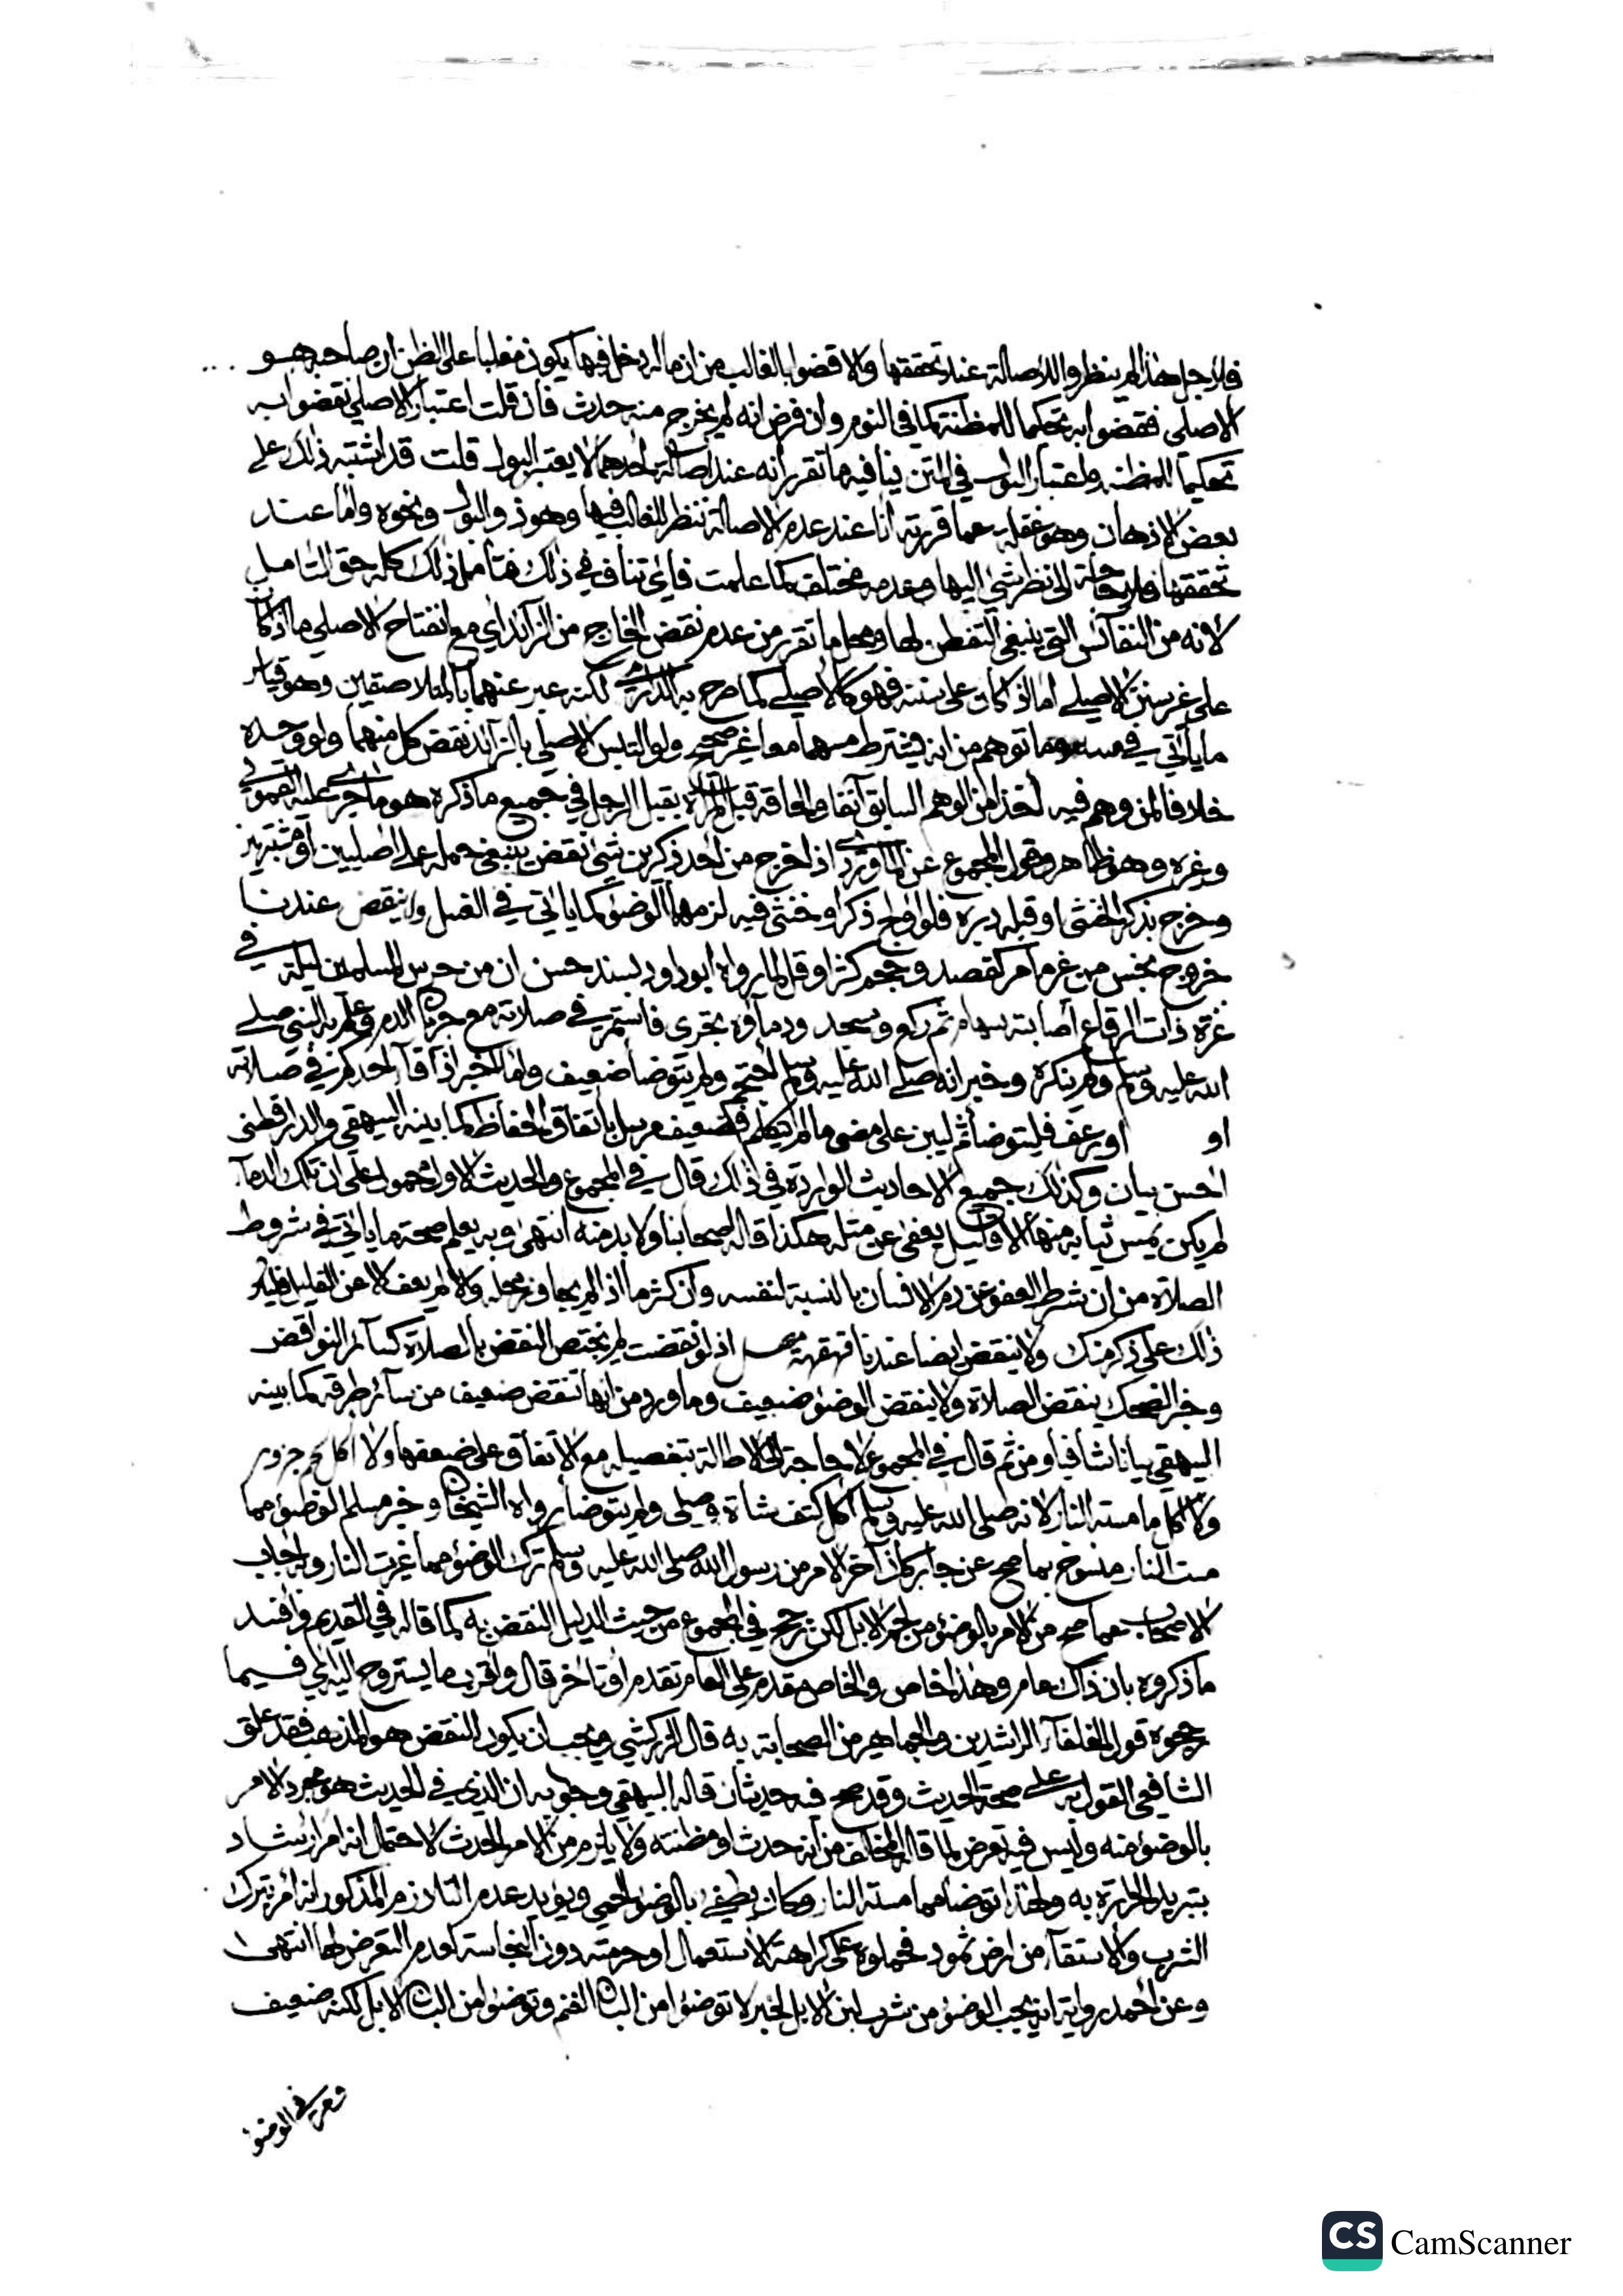 فلاجل هذا لم ينظروا للاصالة عند تحققها والا قضوا بالغالب من ان ماله دخل فيها يكون مغلبا على الظن ان صاحبه هو
الاصلى فقضوا به تحكيما للمظنة كما فى النوم وان فرض انه لم يخرج منه حدث فان قلت اعتبار الاصلى نقضوا به
تحكيما للمظنة واعتبار البول فى المتن ينافيه ما تقرر انه عند اصالة احدهما لا يعتبر البول قلت قد اشتبه ذلك على
بعض الاذهان وهو غفلة عما قررته انا عند عدم الاصالة ننظر للغالب فيها وهو ذو البول ونحوه واما عند
تحققها فلا حاجة الى نظر شئ اليها وعدمه مختلف كما علمت فاى تناف فى ذلك فتأمل ذلك كله حق التامل
لانه من النفائس التى ينبغى التفطن لها ومحل ما تقرر من عدم نقض الخارج من الزائد اي مع انفتاح الاصلي ما اذا كان
على غير سنن الاصلي اما اذا كان على سننه فهو كالاصلي كما صرح به لكنه عبر عنهما بالمتلاصقين وهو قياس
ما ياتي في مسه وما توهم من انه يشترط مسهما معا غير صحيح ولو التبس الاصلي بالزائد نقض كل منهما ولو وحده
خلافا لمن وهم فيه اخذا من الوهم السابق آنفا والحاقه قبل المرأة بقبل الرجل في جميع ما ذكره هو ما جرى عليه القمولي
وغيره وهو ظاهر وقول المجموع عن الماوردي اذا خرج من احد ذكرين شئ نقض ينبغى حمله على اصليين او مشتبهين
وخرج بذكر الخنثى او قبله دبره فلو اولج ذكر او خنثى فيه لزمهما الوضوء كما ياتي في الغسل ولا ينقض عندنا
خروج نجس من غير ما مر كفصد وحجم كثر او قل لما رواه ابو داود بسند حسن ان من حرس المسلمين ليلة في
غزة ذات الرقاع اصابته سهام ثم ركع وسجد ودماؤه تجرى فاستمر في صلاته مع جريان الدم وعلم به النبي صلى
الله عليه وسلم ولم ينكره وخبر انه صلى الله عليه وسلم احتجم ولم يتوضأ ضعيف واما خبر اذا قاء احدكم في صلاته
او او رعف فليتوضأ ثم ليبن على مضى ما لم يتكلم فضعيف مرسل باتفاق الحفاظ كما بينه البيهقي والدارقطنى
احسن بيان وكذلك جميع الاحاديث الواردة في ذلك قال في المجموع والحديث الاول محمول على ان تلك الدماء
لم يكن يمس ثيابه منها الا قليل يعفى عن مثله هكذا قاله اصحابنا ولا بد منه انتهى وبه يعلم صحة ما ياتي في شروط
الصلاة من ان شرط العفو عن دم الانسان بالنسبة لنفسه وان كثر ما اذا لم يجاوز محله والا لم يعف الا عن القليل فليكن
ذلك على ذكر منك ولا ينقض ايضا عندنا قهقهة مصل اذ لو نقضت لم يختص النقض بالصلاة كسائر النواقض
وخبر الضحك ينقض الصلاة ولا ينقض الوضوء ضعيف وما ورد من انها تنقض ضعيف من سائر طرقه كما بينه
البيهقي بيانا شافيا ومن ثم قال في المجموع لا حاجة الى الاطالة بتفصيله مع الاتفاق على ضعفها ولا اكل لحم جزور
ولا اكل ما مسته النار لانه صلى الله عليه وسلم اكل كتف شاة وصلى ولم يتوضأ رواه الشيخان وخبر مسلم الوضوء مما
مست النار منسوخ بما صح عن جابر كان آخر الامر من رسول الله صلى الله عليه وسلم ترك الوضوء مما غيرت النار وبه اجاب
الاصحاب عما صح من الامر بالوضوء من لحم الابل لكن رجح في المجموع من حيث الدليل النقض به كما قاله في القديم وافسد
ما ذكروه بان ذاك عام وهذا خاص والخاص مقدم على العام تقدم او تاخر قال واقرب ما يستروح اليه لي فيما
رجحوه قول الخلفاء الراشدين والجماهير من الصحابة به قال الزركشي ويجب ان يكون النقض هو المذهب فقد علق
الشافعي القول به على صحة الحديث وقد صح فيه حديثان قاله البيهقي وجوابه ان الذى في الحديث هو مجرد الامر
بالوضوء منه وليس فيه تعرض لما قاله المخالف من انه حدث او مظنته ولا يلزم من الامر الحدث لاحتمال انه امر ارشاد
بتبريد الحرارة به ولهذا توضأ مما مسته النار وكان يطفي بالوضوء الحمى ويؤيد عدم التلازم المذكور انه امر بترك
الشرب والاستقاء من ارض ثمود فحملوه على كراهة الاستعمال او حرمته دون النجاسة لعدم التعرض لها انتهى
وعن احمد رواية انه يجب الوضوء من شرب لبن الابل لخبر لا توضؤا من البان الغنم وتوضؤا من البان الابل لكنه ضعيف
الوضوء
CS CamScanner